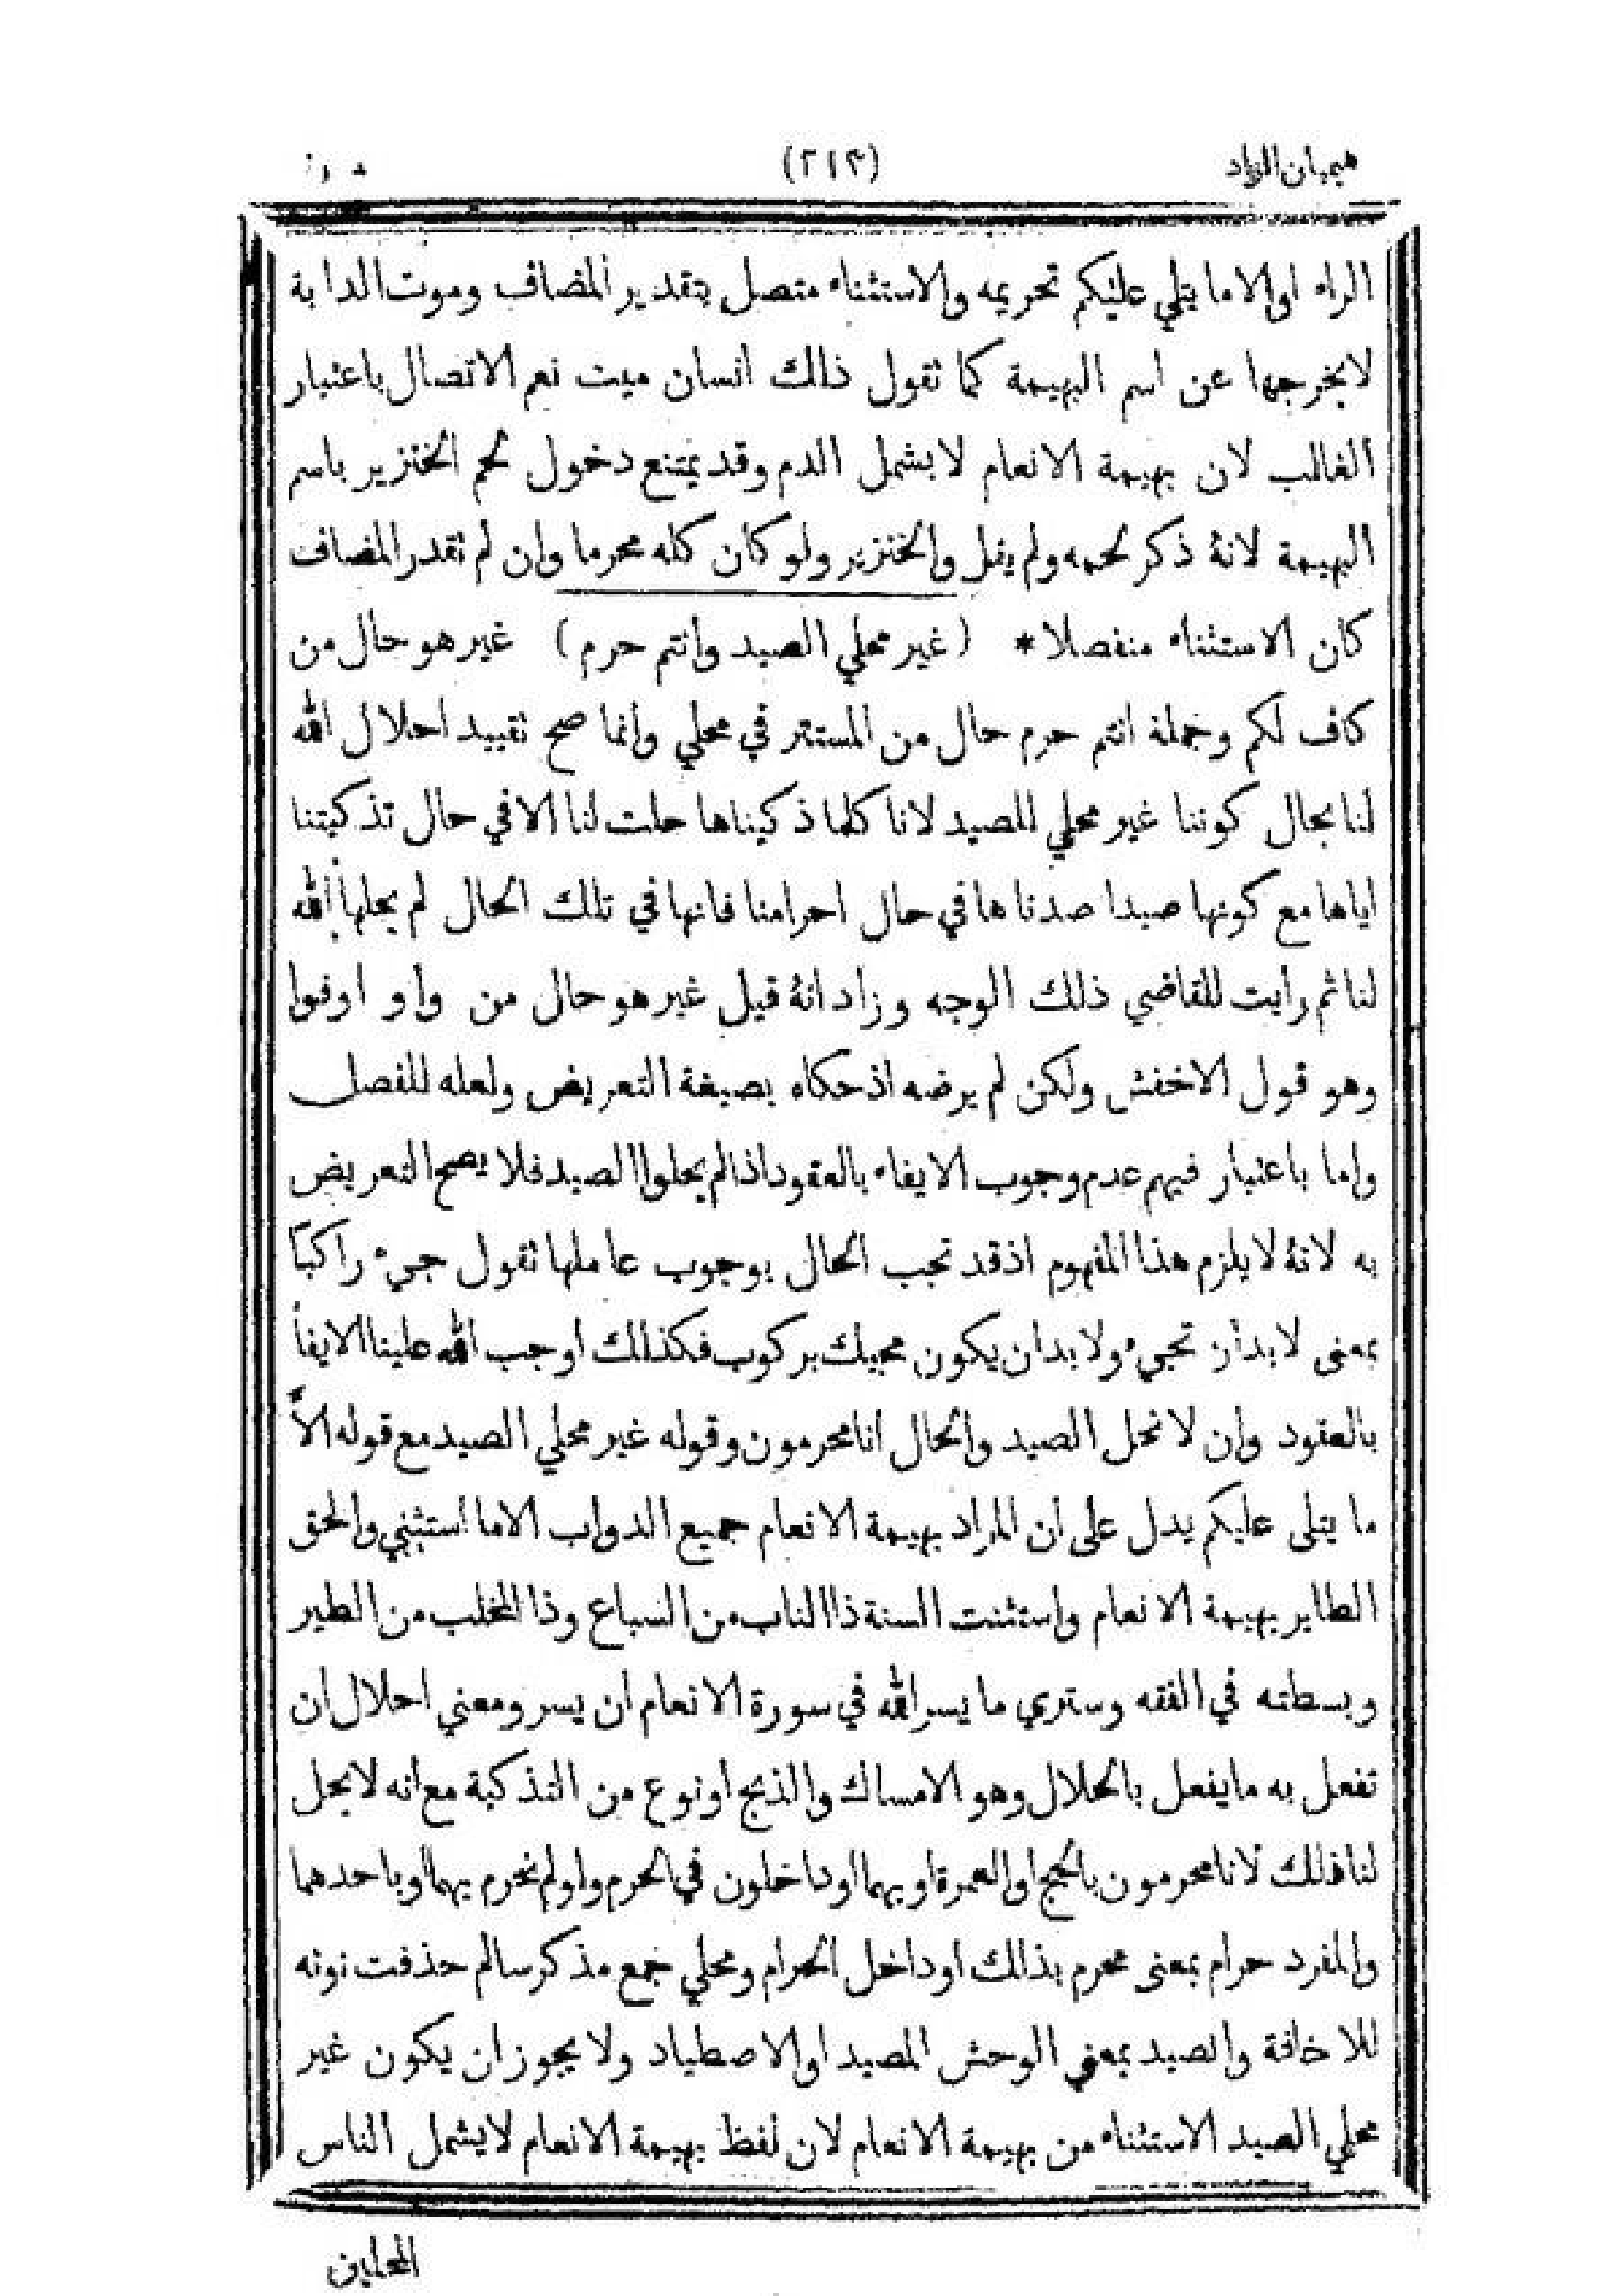 هيميان الزاد (٢١٤)
الراء او الا ما يتلي عليكم تحريمه والاستثناء متصل بتقدير المضاف وموت الدابة
لا يخرجها عن اسم البهيمة كما تقول ذالك انسان ميت نعم الاتصال باعتبار
الغالب لان بهيمة الانعام لا يشمل الدم وقد يمتنع دخول لحم الخنزير باسم
البهيمة لانهُ ذكر لحمه ولم يقل والخنزير ولو كان كله محرما وان لم تقدر المضاف
كان الاستثناء منفصلا * (غير محلي الصيد وانتم حرم) غير هو حال من
كاف لكم وجملة انتم حرم حال من المستتر في محلي وانما صح تقييد احلال الله
لنا بحال كوننا غير محلي للصيد لانا كلما ذكيناها حلت لنا الا في حال تذكيتنا
اياها مع كونها صيدا صدناها في حال احرامنا فانها في تلك الحال لم يحلها الله
لنا ثم رأيت للقاضي ذلك الوجه وزاد انهُ قيل غير هو حال من واو اوفوا
وهو قول الاخفش ولكن لم يرضه اذ حكاه بصيغة التعريض ولعله للفصل
واما باعتبار فيهم عدم وجوب الايفاء بالعقود اذا لم يحلوا الصيد فلا يصح التعريض
به لانهُ لا يلزم هذا المفهوم اذ قد تجب الحال بوجوب عاملها تقول جيء راكبًا
بمعنى لا بد أن تجيء ولا بد ان يكون مجيك بركوب فكذلك أوجب الله علينا الايفأ
بالعقود وان لا نحل الصيد والحال انا محرمون وقوله غير محلي الصيد مع قوله الاَّ
ما يتلى عليكم يدل على أن المراد بهيمة الانعام جميع الدواب الا ما استثني والحق
الطاير بهيمة الانعام واستثنت السنة ذا الناب من السباع وذا المخلب من الطير
وبسطته في الفقه وستري ما يسر الله في سورة الانعام ان يسر ومعني احلال ان
تفعل به ما يفعل بالحلال وهو الامساك والذبح او نوع من التذكية مع انه لا يحل
لنا ذلك لانا محرمون بالحج او العمرة او بهما او داخلون في الحرم ولو لم نحرم بهما او باحدهما
والمفرد حرام بمعنى محرم بذالك او داخل الحرام ومحلي جمع مذكر سالم حذفت نونه
للاضافة والصيد بمعني الوحش المصيد او الاصطياد ولا يجوز ان يكون غير
محلي الصيد الاستثناء من بهيمة الانعام لان لفظ بهيمة الانعام لا يشمل الناس
المحلين